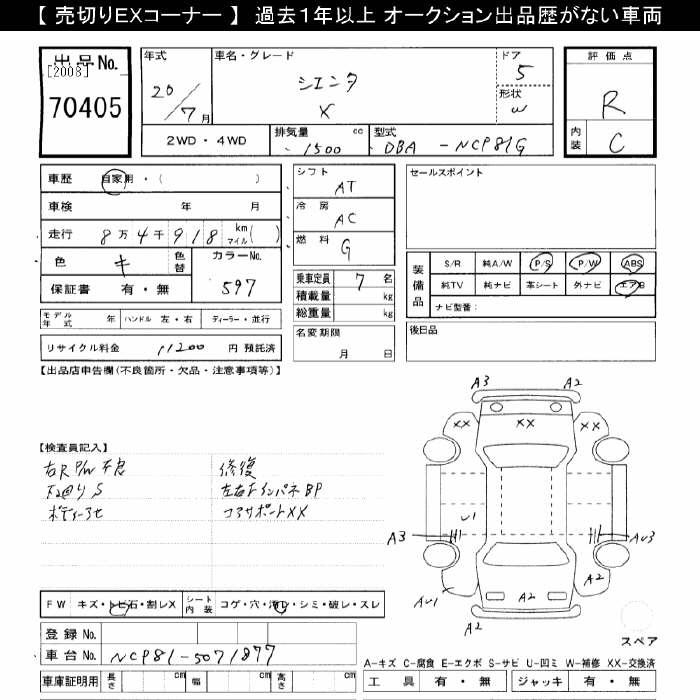 【 売切りEXコーナー 】 過去1年以上 オークション出品歴がない車両
出品No.
[2008]
70405
年式
20/7月
車名・グレード
シエンタ
X
ドア
5
形状
W
評価点
R
内装
C
2WD・4WD
排気量 1500 cc
型式 DBA - NCP81G
車歴 自家用・( )
車検 年 月
走行 8万4千918 km マイル( )
色 キ 色替
カラーNo. 597
保証書 有・無
モデル年式 年 ハンドル 左・右 ディーラー・並行
リサイクル料金 11200 円 預託済
シフト AT
冷房 AC
燃料 G
乗車定員 7 名
積載量 kg
総重量 kg
名変期限
月 日
セールスポイント
装備品
S/R 純A/W P/S P/W ABS
純TV 純ナビ 革シート 外ナビ エアB
ナビ型番:
後日品
【出品店申告欄(不良箇所・欠品・注意事項等)】
【検査員記入】
右R P/W不良
下回りS
ボディーアセ
修復
左右FインパネBP
コアサポートXX
A3 A2
XX XX XX
U1
A3 AU3
AU1 A2 A2
A2
スペア
FW キズ・トビ石・割レX
シート内装 コゲ・穴・汚レ・シミ・破レ・スレ
登録No.
車台No. NCP81-5071877
車庫証明用 長さ cm 幅 cm 高さ cm
A-キズ C-腐食 E-エクボ S-サビ U-凹ミ W-補修 XX-交換済
工具 有・無 ジャッキ 有・無